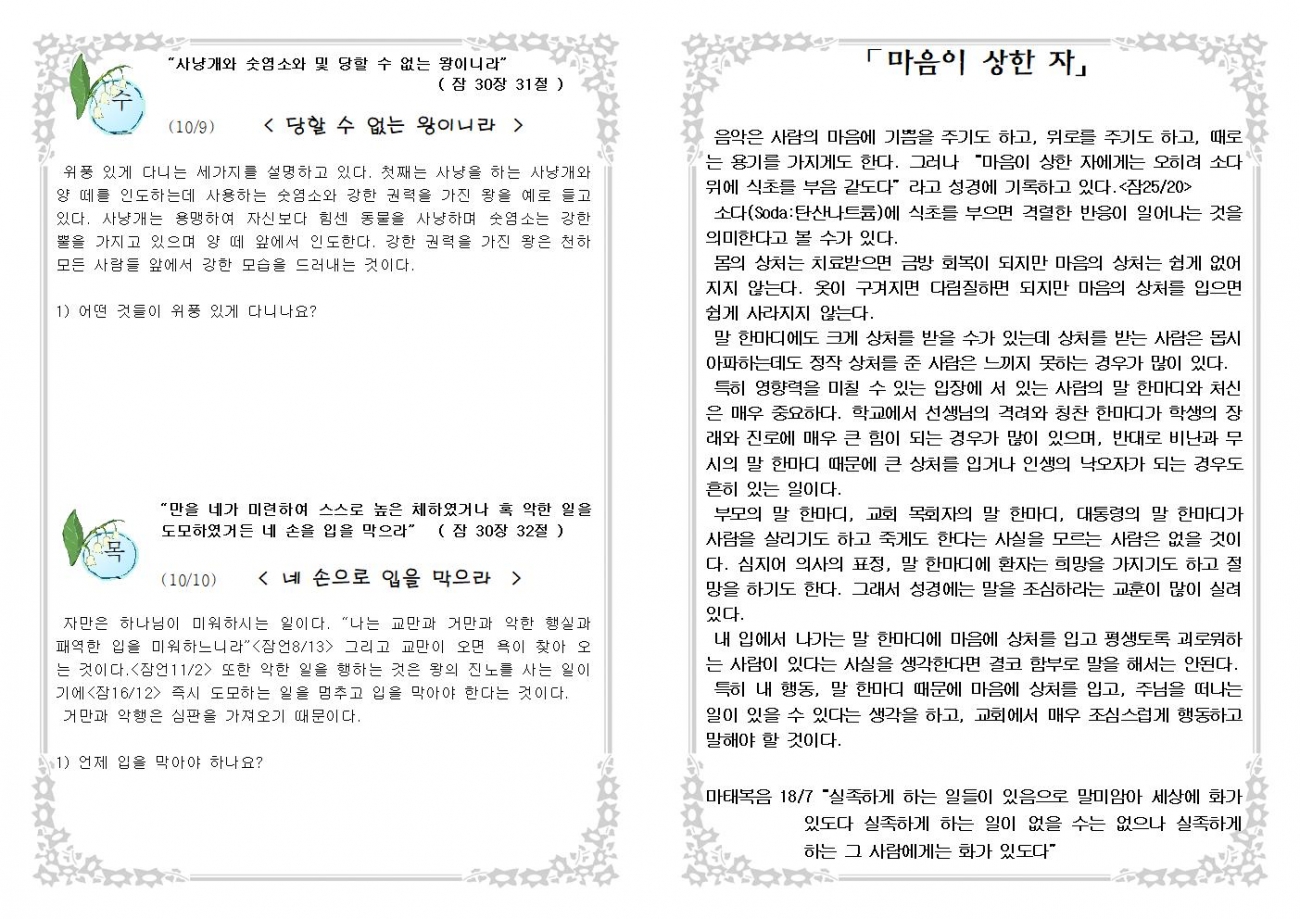 “사냥개와 숫염소와 및 당할 수 없는 왕이니라”
( 잠 30장 31절 )
수
(10/9) < 당할 수 없는 왕이니라 >
위풍 있게 다니는 세가지를 설명하고 있다. 첫째는 사냥을 하는 사냥개와
양 떼를 인도하는데 사용하는 숫염소와 강한 권력을 가진 왕을 예로 들고
있다. 사냥개는 용맹하여 자신보다 힘센 동물을 사냥하며 숫염소는 강한
뿔을 가지고 있으며 양 떼 앞에서 인도한다. 강한 권력을 가진 왕은 천하
모든 사람들 앞에서 강한 모습을 드러내는 것이다.
1) 어떤 것들이 위풍 있게 다니나요?
“만을 네가 미련하여 스스로 높은 체하였거나 혹 악한 일을
도모하였거든 네 손을 입을 막으라” ( 잠 30장 32절 )
목
(10/10) < 네 손으로 입을 막으라 >
자만은 하나님이 미워하시는 일이다. “나는 교만과 거만과 악한 행실과
패역한 입을 미워하느니라”<잠언8/13> 그리고 교만이 오면 욕이 찾아 오
는 것이다.<잠언11/2> 또한 악한 일을 행하는 것은 왕의 진노를 사는 일이
기에<잠16/12> 즉시 도모하는 일을 멈추고 입을 막아야 한다는 것이다.
거만과 악행은 심판을 가져오기 때문이다.
1) 언제 입을 막아야 하나요?
「마음이 상한 자」
음악은 사람의 마음에 기쁨을 주기도 하고, 위로를 주기도 하고, 때로
는 용기를 가지게도 한다. 그러나 “마음이 상한 자에게는 오히려 소다
위에 식초를 부음 같도다” 라고 성경에 기록하고 있다.<잠25/20>
소다(Soda:탄산나트륨)에 식초를 부으면 격렬한 반응이 일어나는 것을
의미한다고 볼 수가 있다.
몸의 상처는 치료받으면 금방 회복이 되지만 마음의 상처는 쉽게 없어
지지 않는다. 옷이 구겨지면 다림질하면 되지만 마음의 상처를 입으면
쉽게 사라지지 않는다.
말 한마디에도 크게 상처를 받을 수가 있는데 상처를 받는 사람은 몹시
아파하는데도 정작 상처를 준 사람은 느끼지 못하는 경우가 많이 있다.
특히 영향력을 미칠 수 있는 입장에 서 있는 사람의 말 한마디와 처신
은 매우 중요하다. 학교에서 선생님의 격려와 칭찬 한마디가 학생의 장
래와 진로에 매우 큰 힘이 되는 경우가 많이 있으며, 반대로 비난과 무
시의 말 한마디 때문에 큰 상처를 입거나 인생의 낙오자가 되는 경우도
흔히 있는 일이다.
부모의 말 한마디, 교회 목회자의 말 한마디, 대통령의 말 한마디가
사람을 살리기도 하고 죽게도 한다는 사실을 모르는 사람은 없을 것이
다. 심지어 의사의 표정, 말 한마디에 환자는 희망을 가지기도 하고 절
망을 하기도 한다. 그래서 성경에는 말을 조심하라는 교훈이 많이 실려
있다.
내 입에서 나가는 말 한마디에 마음에 상처를 입고 평생토록 괴로워하
는 사람이 있다는 사실을 생각한다면 결코 함부로 말을 해서는 안된다.
특히 내 행동, 말 한마디 때문에 마음에 상처를 입고, 주님을 떠나는
일이 있을 수 있다는 생각을 하고, 교회에서 매우 조심스럽게 행동하고
말해야 할 것이다.
마태복음 18/7 “실족하게 하는 일들이 있음으로 말미암아 세상에 화가
있도다 실족하게 하는 일이 없을 수는 없으나 실족하게
하는 그 사람에게는 화가 있도다”